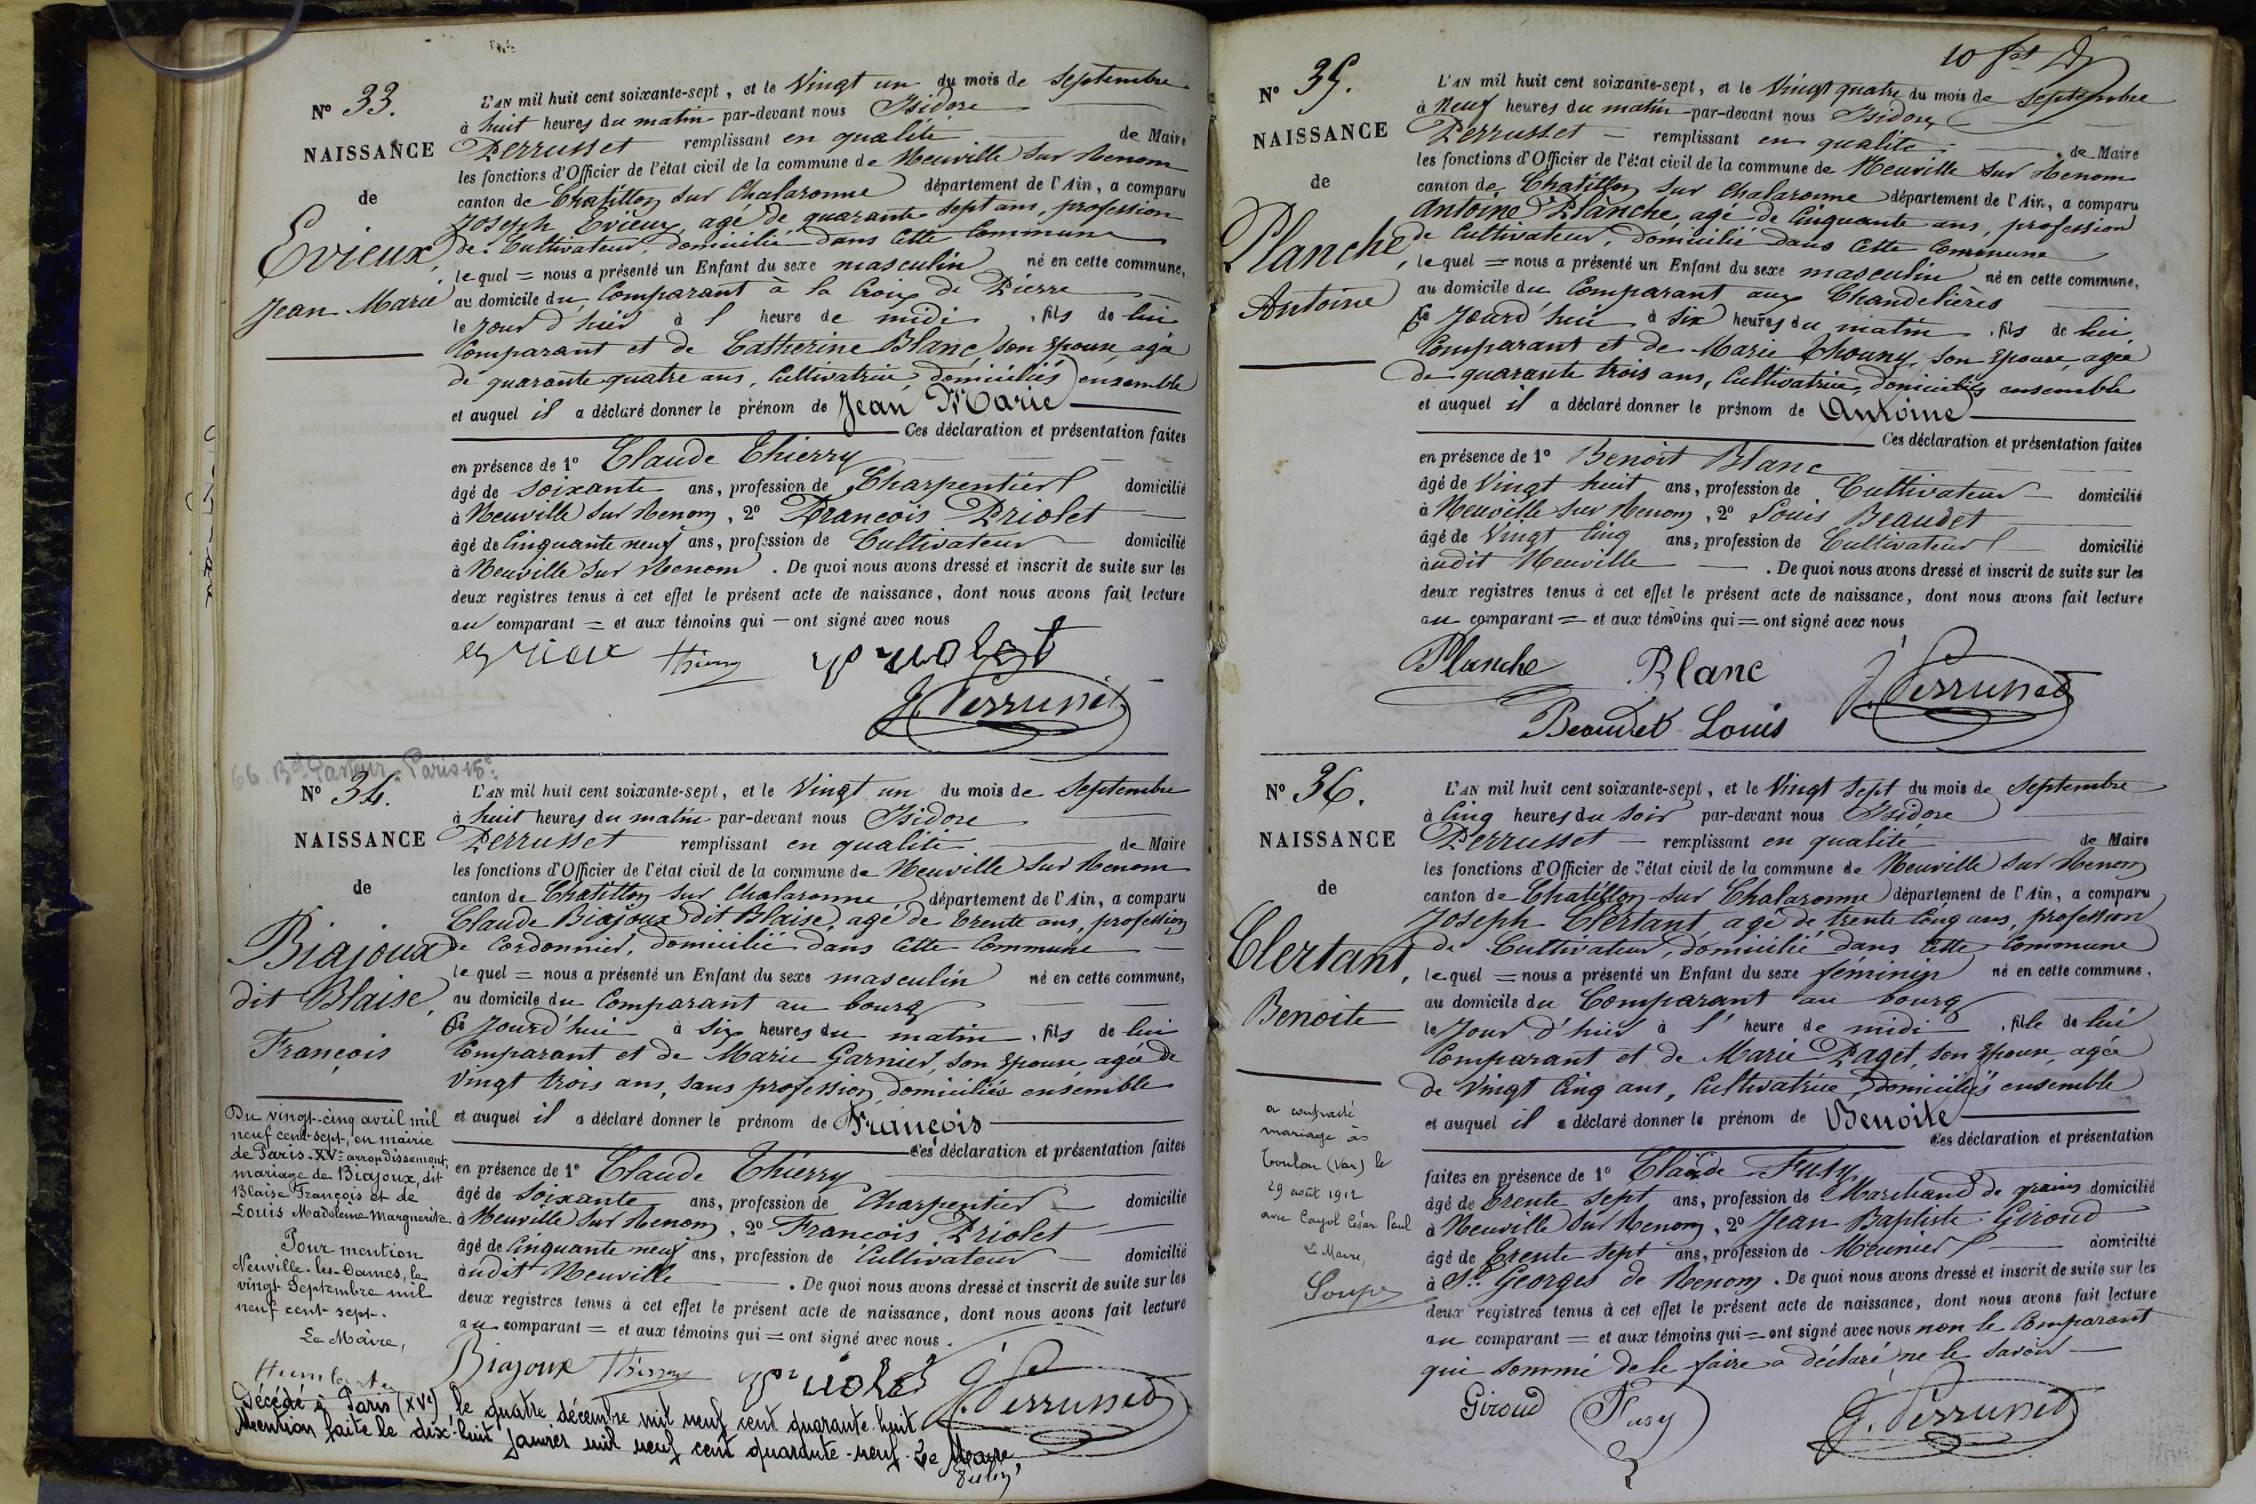 N° 33.
NAISSANCE
de
Evieux,
Jean Marie
L'AN mil huit cent soixante-sept, et le Vingt un du mois de Septembre
à huit heures du matin par-devant nous Isidore
Perrusset remplissant en qualité de Maire
les fonctions d'Officier de l'état civil de la commune de Neuville sur Renom
canton de Chatillon sur Chalaronne département de l'Ain, a comparu
Joseph Evieux, agé de quarante sept ans, profession
de Cultivateur, domicilié dans cette Commune
lequel = nous a présenté un Enfant du sexe masculin né en cette commune,
au domicile du Comparant à la Croix de Pierre
le jour d'hier à l heure de midi, fils de lui
Comparant et de Catherine Blanc, son Epouse, agée
de quarante quatre ans, Cultivatrice, domiciliés ensemble
et auquel il a déclaré donner le prénom de Jean Marie
Ces déclaration et présentation faites
en présence de 1° Claude Thierry
âgé de soixante ans, profession de Charpentier domicilié
à Neuville sur Renom, 2° François Priolet
âgé de Cinquante neuf ans, profession de Cultivateur domicilié
à Neuville sur Renom. De quoi nous avons dressé et inscrit de suite sur les
deux registres tenus à cet effet le présent acte de naissance, dont nous avons fait lecture
au comparant = et aux témoins qui — ont signé avec nous
evieux Thierry priolet
J. Perrusset
66. Bd Pasteur - Paris 15e
N° 34.
NAISSANCE
de
Biajoux
dit Blaise,
François
L'AN mil huit cent soixante-sept, et le Vingt un du mois de Septembre
à huit heures du matin par-devant nous Isidore
Perrusset remplissant en qualité de Maire
les fonctions d'Officier de l'état civil de la commune de Neuville sur Renom
canton de Chatillon sur Chalaronne département de l'Ain, a comparu
Claude Biajoux dit Blaise, agé de trente ans, profession
de Cordonnier, domicilié dans cette Commune
lequel = nous a présenté un Enfant du sexe masculin né en cette commune,
au domicile du Comparant au bourg
Ce Jourd'hui à six heures du matin, fils de lui
Comparant et de Marie Garnier, son Epouse, agée de
Vingt trois ans, sans profession, domiciliés ensemble
et auquel il a déclaré donner le prénom de François
Ces déclaration et présentation faites
en présence de 1° Claude Thierry
âgé de soixante ans, profession de Charpentier domicilié
à Neuville sur Renom, 2° François Priolet
âgé de Cinquante neuf ans, profession de Cultivateur domicilié
audit Neuville. De quoi nous avons dressé et inscrit de suite sur les
deux registres tenus à cet effet le présent acte de naissance, dont nous avons fait lecture
au comparant = et aux témoins qui = ont signé avec nous.
Biajoux Thierry priolet J. Perrusset
Du vingt-cinq avril mil
neuf cent-sept, en mairie
de Paris-XVe arrondissement,
mariage de Biajoux, dit
Blaise François et de
Louis Madeleine Marguerite
Pour mention
Neuville-les-Dames, le
vingt Septembre mil
neuf cent sept.
Le Maire,
Décédé à Paris (XVe) le quatre décembre mil neuf cent quarante huit
Mention faite le dix-huit janvier mil neuf cent quarante-neuf. Le Maire,
10 fet
N° 35.
NAISSANCE
de
Planche,
Antoine
L'AN mil huit cent soixante-sept, et le Vingt quatre du mois de Septembre
à Neuf heures du matin par-devant nous Isidore
Perrusset — remplissant en qualité de Maire
les fonctions d'Officier de l'état civil de la commune de Neuville sur Renom
canton de Chatillon sur Chalaronne département de l'Ain, a comparu
Antoine Planche, agé de Cinquante ans, profession
de Cultivateur, domicilié dans cette Commune
lequel = nous a présenté un Enfant du sexe masculin né en cette commune,
au domicile du Comparant aux Chandelières
Ce Jourd'hui à six heures du matin, fils de lui
Comparant et de Marie Thouny, son Epouse, agée
de quarante trois ans, Cultivatrice, domiciliés ensemble
et auquel il a déclaré donner le prénom de Antoine
Ces déclaration et présentation faites
en présence de 1° Benoit Blanc
âgé de Vingt huit ans, profession de Cultivateur domicilié
à Neuville sur Renom, 2° Louis Beaudet
âgé de Vingt Cinq ans, profession de Cultivateur domicilié
audit Neuville. De quoi nous avons dressé et inscrit de suite sur les
deux registres tenus à cet effet le présent acte de naissance, dont nous avons fait lecture
au comparant = et aux témoins qui = ont signé avec nous
Planche Blanc J. Perrusset
Beaudet Louis
N° 36.
NAISSANCE
de
Clertant,
Benoite
L'AN mil huit cent soixante-sept, et le Vingt sept du mois de Septembre
à Cinq heures du soir par-devant nous Isidore
Perrusset — remplissant en qualité de Maire
les fonctions d'Officier de l'état civil de la commune de Neuville sur Renom
canton de Chatillon sur Chalaronne département de l'Ain, a comparu
Joseph Clertant, agé de trente Cinq ans, profession
de Cultivateur, domicilié dans cette Commune
lequel = nous a présenté un Enfant du sexe féminin né en cette commune,
au domicile du Comparant au bourg
le Jour d'hier à l' heure de midi, fille de lui
Comparant et de Marie Paget, son Epouse, agée
de Vingt Cinq ans, Cultivatrice, domiciliés ensemble
et auquel il a déclaré donner le prénom de Benoite
Ces déclaration et présentation
faites en présence de 1° Claude Fusy
âgé de trente sept ans, profession de Marchand de grains domicilié
à Neuville sur Renom, 2° Jean Baptiste Giroud
âgé de trente sept ans, profession de Meunier domicilié
à St Georges de Renom. De quoi nous avons dressé et inscrit de suite sur les
deux registres tenus à cet effet le présent acte de naissance, dont nous avons fait lecture
au comparant = et aux témoins qui = ont signé avec nous non le Comparant
qui sommé de le faire a déclaré ne le savoir
Giroud Fusy J. Perrusset
a contracté
mariage à
Toulon (Var) le
29 août 1912
avec Cayol César Paul
Le Maire,